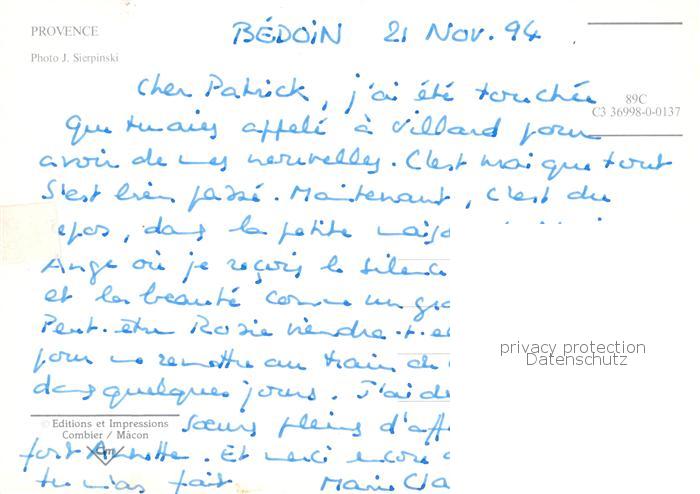 PROVENCE
Photo J. Sierpinski
BÉDOIN 21 Nov. 94
89C
C3 36998-0-0137
Cher Patrick, j'ai été touchée
que tu aies appelé à Villard pour
avoir de mes nouvelles. C'est vrai que tout
s'est bien passé. Maintenant, c'est du
epos, dans la petite mais
Ange où je reçois le silence
et la beauté comme un gra
Peut-être Rosie viendra-t-e
pour me remettre au train de
dans quelques jours. J'ai de
sœurs pleins d'aff
fort Annette. Et merci encore
tu m'as fait Marie Cla
privacy protection
Datenschutz
© Editions et Impressions
Combier / Mâcon